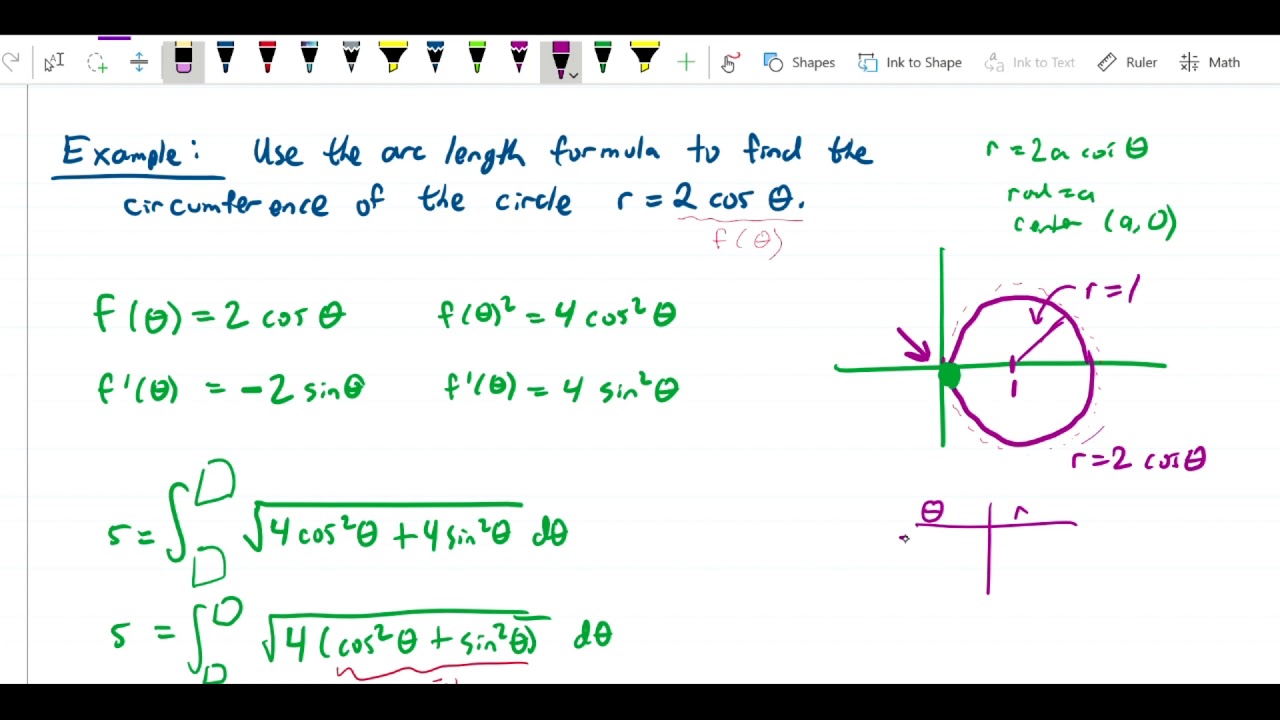 Shapes
Ink to Shape
Ink to Text
Ruler
Math
Example: Use the arc length formula to find the
circumference of the circle r = 2 cos θ.
f(θ)
r = 2a cos θ
rad = a
center (a, 0)
f(θ) = 2 cos θ
f(θ)² = 4 cos² θ
f'(θ) = -2 sin θ
f'(θ) = 4 sin² θ
r = 1
1
r = 2 cos θ
θ r
s = ∫ √4 cos² θ + 4 sin² θ dθ
s = ∫ √4 (cos² θ + sin² θ) dθ